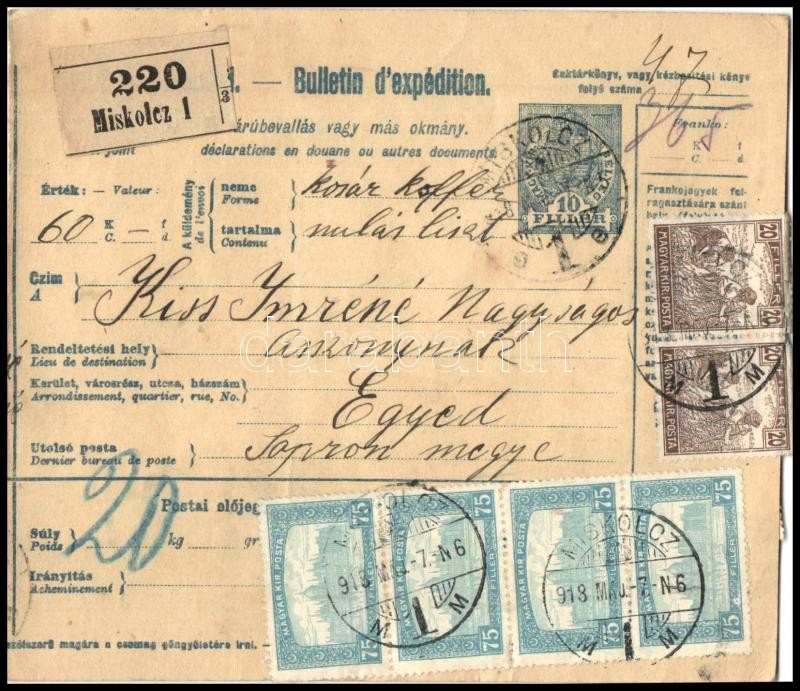 220
Miskolcz 1
— Bulletin d'expédition.
Raktárkönyv, vagy kézbesítési könyv
folyó száma
47
365
árúbevallás vagy más okmány.
joint déclarations en douane ou autres documents
Franko:
K f
C. d
Frankojegyek fel-
ragasztására szánt
10
FILLÉR
Érték: — Valeur:
60 K — f
C. — d
A küldemény
de l'envoi
neme
Forme
kosár koffer
tartalma
Contenu
nulás liszt
Czim
A
Kiss Imréné Nagyságos
asszonynak
Rendeltetési hely
Lieu de destination
Kerület, városrész, utcza, házszám
Arrondissement, quartier, rue, No.
Egyed
Utolsó posta
Dernier bureau de poste
Sopron megye
20
Postai előjeg
Súly
Poids
kg gr
Irányítás
Acheminement
magára a csomag göngyöletére írni.
MISKOLCZ
1
20 FILLÉR 20
MAGYAR KIR. POSTA
20 FILLÉR 20
MAGYAR KIR. POSTA
M 1 M
MAGYAR KIR. POSTA 75 FILLÉR 75
MAGYAR KIR. POSTA 75 FILLÉR 75
MAGYAR KIR. POSTA 75 FILLÉR 75
MAGYAR KIR. POSTA 75 FILLÉR 75
MISKOLCZ
918 MÁJ. -7.-N6
M 1 M
MISKOLCZ
918 MÁJ. -7.-N6
M 1 M
darabanth